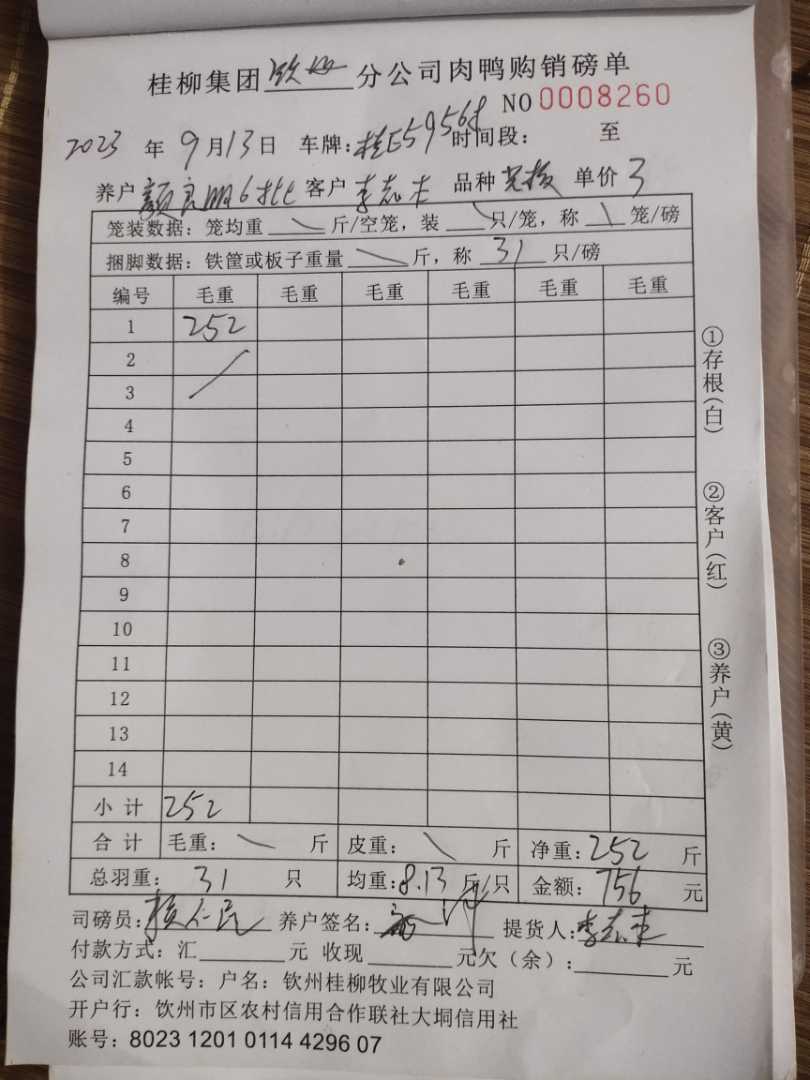 桂柳集团钦州分公司肉鸭购销磅单
NO 0008260
2023年9月13日 车牌:桂E59568 时间段: 至
养户 颜良明6批 客户 李志杰 品种 单价 3
笼装数据: 笼均重 \ 斤/空笼, 装 \ 只/笼, 称 \ 笼/磅
捆脚数据: 铁筐或板子重量 \ 斤, 称 31 只/磅
编号 毛重 毛重 毛重 毛重 毛重 毛重
1 252
2
3
4
5
6
7
8
9
10
11
12
13
14
小计 252
合计 毛重: \ 斤 皮重: \ 斤 净重: 252 斤
总羽重: 31 只 均重: 8.13 斤/只 金额: 756 元
司磅员: 养户签名: 提货人: 李志杰
付款方式: 汇 元 收现 元欠(余): 元
公司汇款帐号: 户名: 钦州桂柳牧业有限公司
开户行: 钦州市区农村信用合作联社大垌信用社
账号: 8023 1201 0114 4296 07
①存根(白)
②客户(红)
③养户(黄)